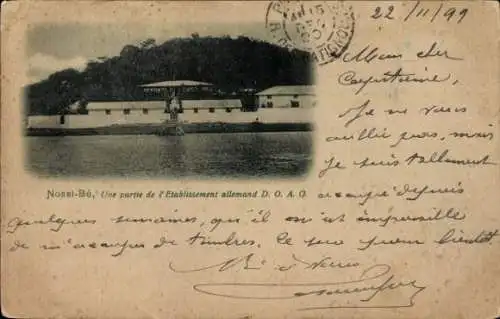 22/11/99
Mon cher
Capitaine,
Je ne vous
oublie pas, mais
je suis tellement
Nossi-Bé, Une partie de l'Etablissement allemand D. O. A. G.
occupé depuis
quelques semaines, qu'il m'est impossible
de m'occuper de timbres. Ce sera pour bientôt